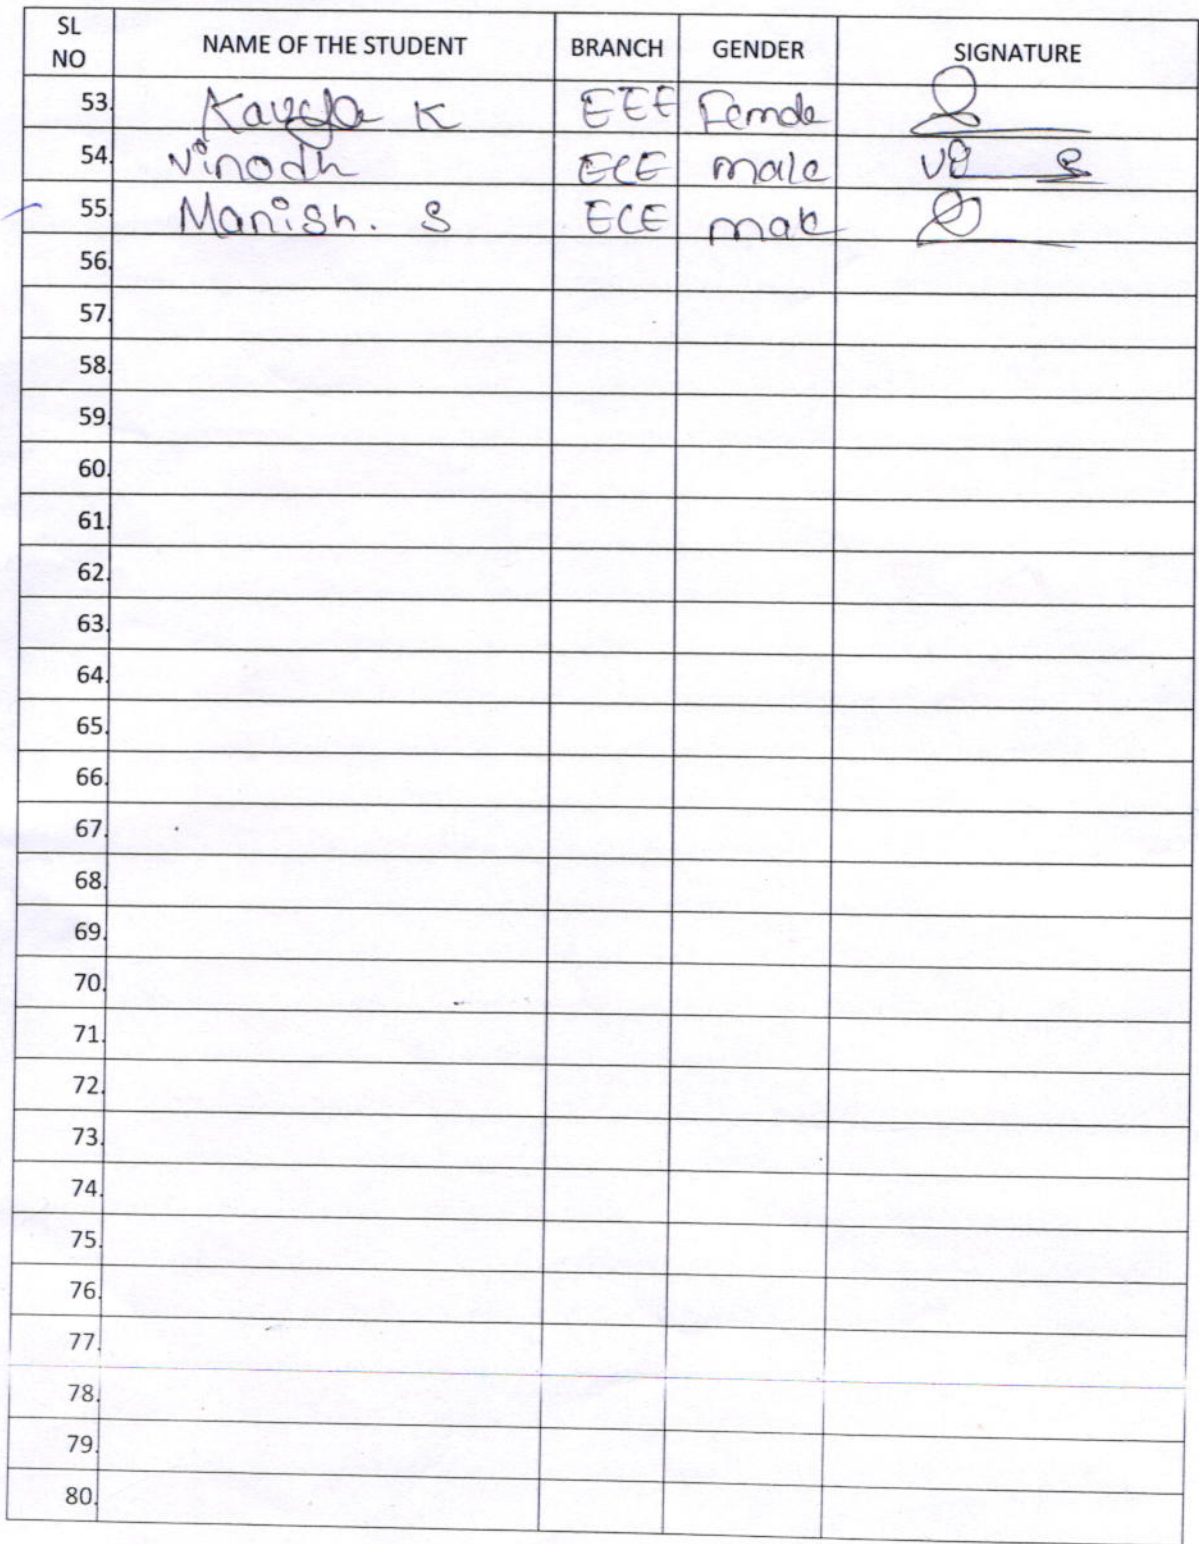 SL NO NAME OF THE STUDENT BRANCH GENDER SIGNATURE
53. K EEE Female
54. Vinodh ECE male
55. Manish. S ECE male
56.
57.
58.
59.
60.
61.
62.
63.
64.
65.
66.
67.
68.
69.
70.
71.
72.
73.
74.
75.
76.
77.
78.
79.
80.